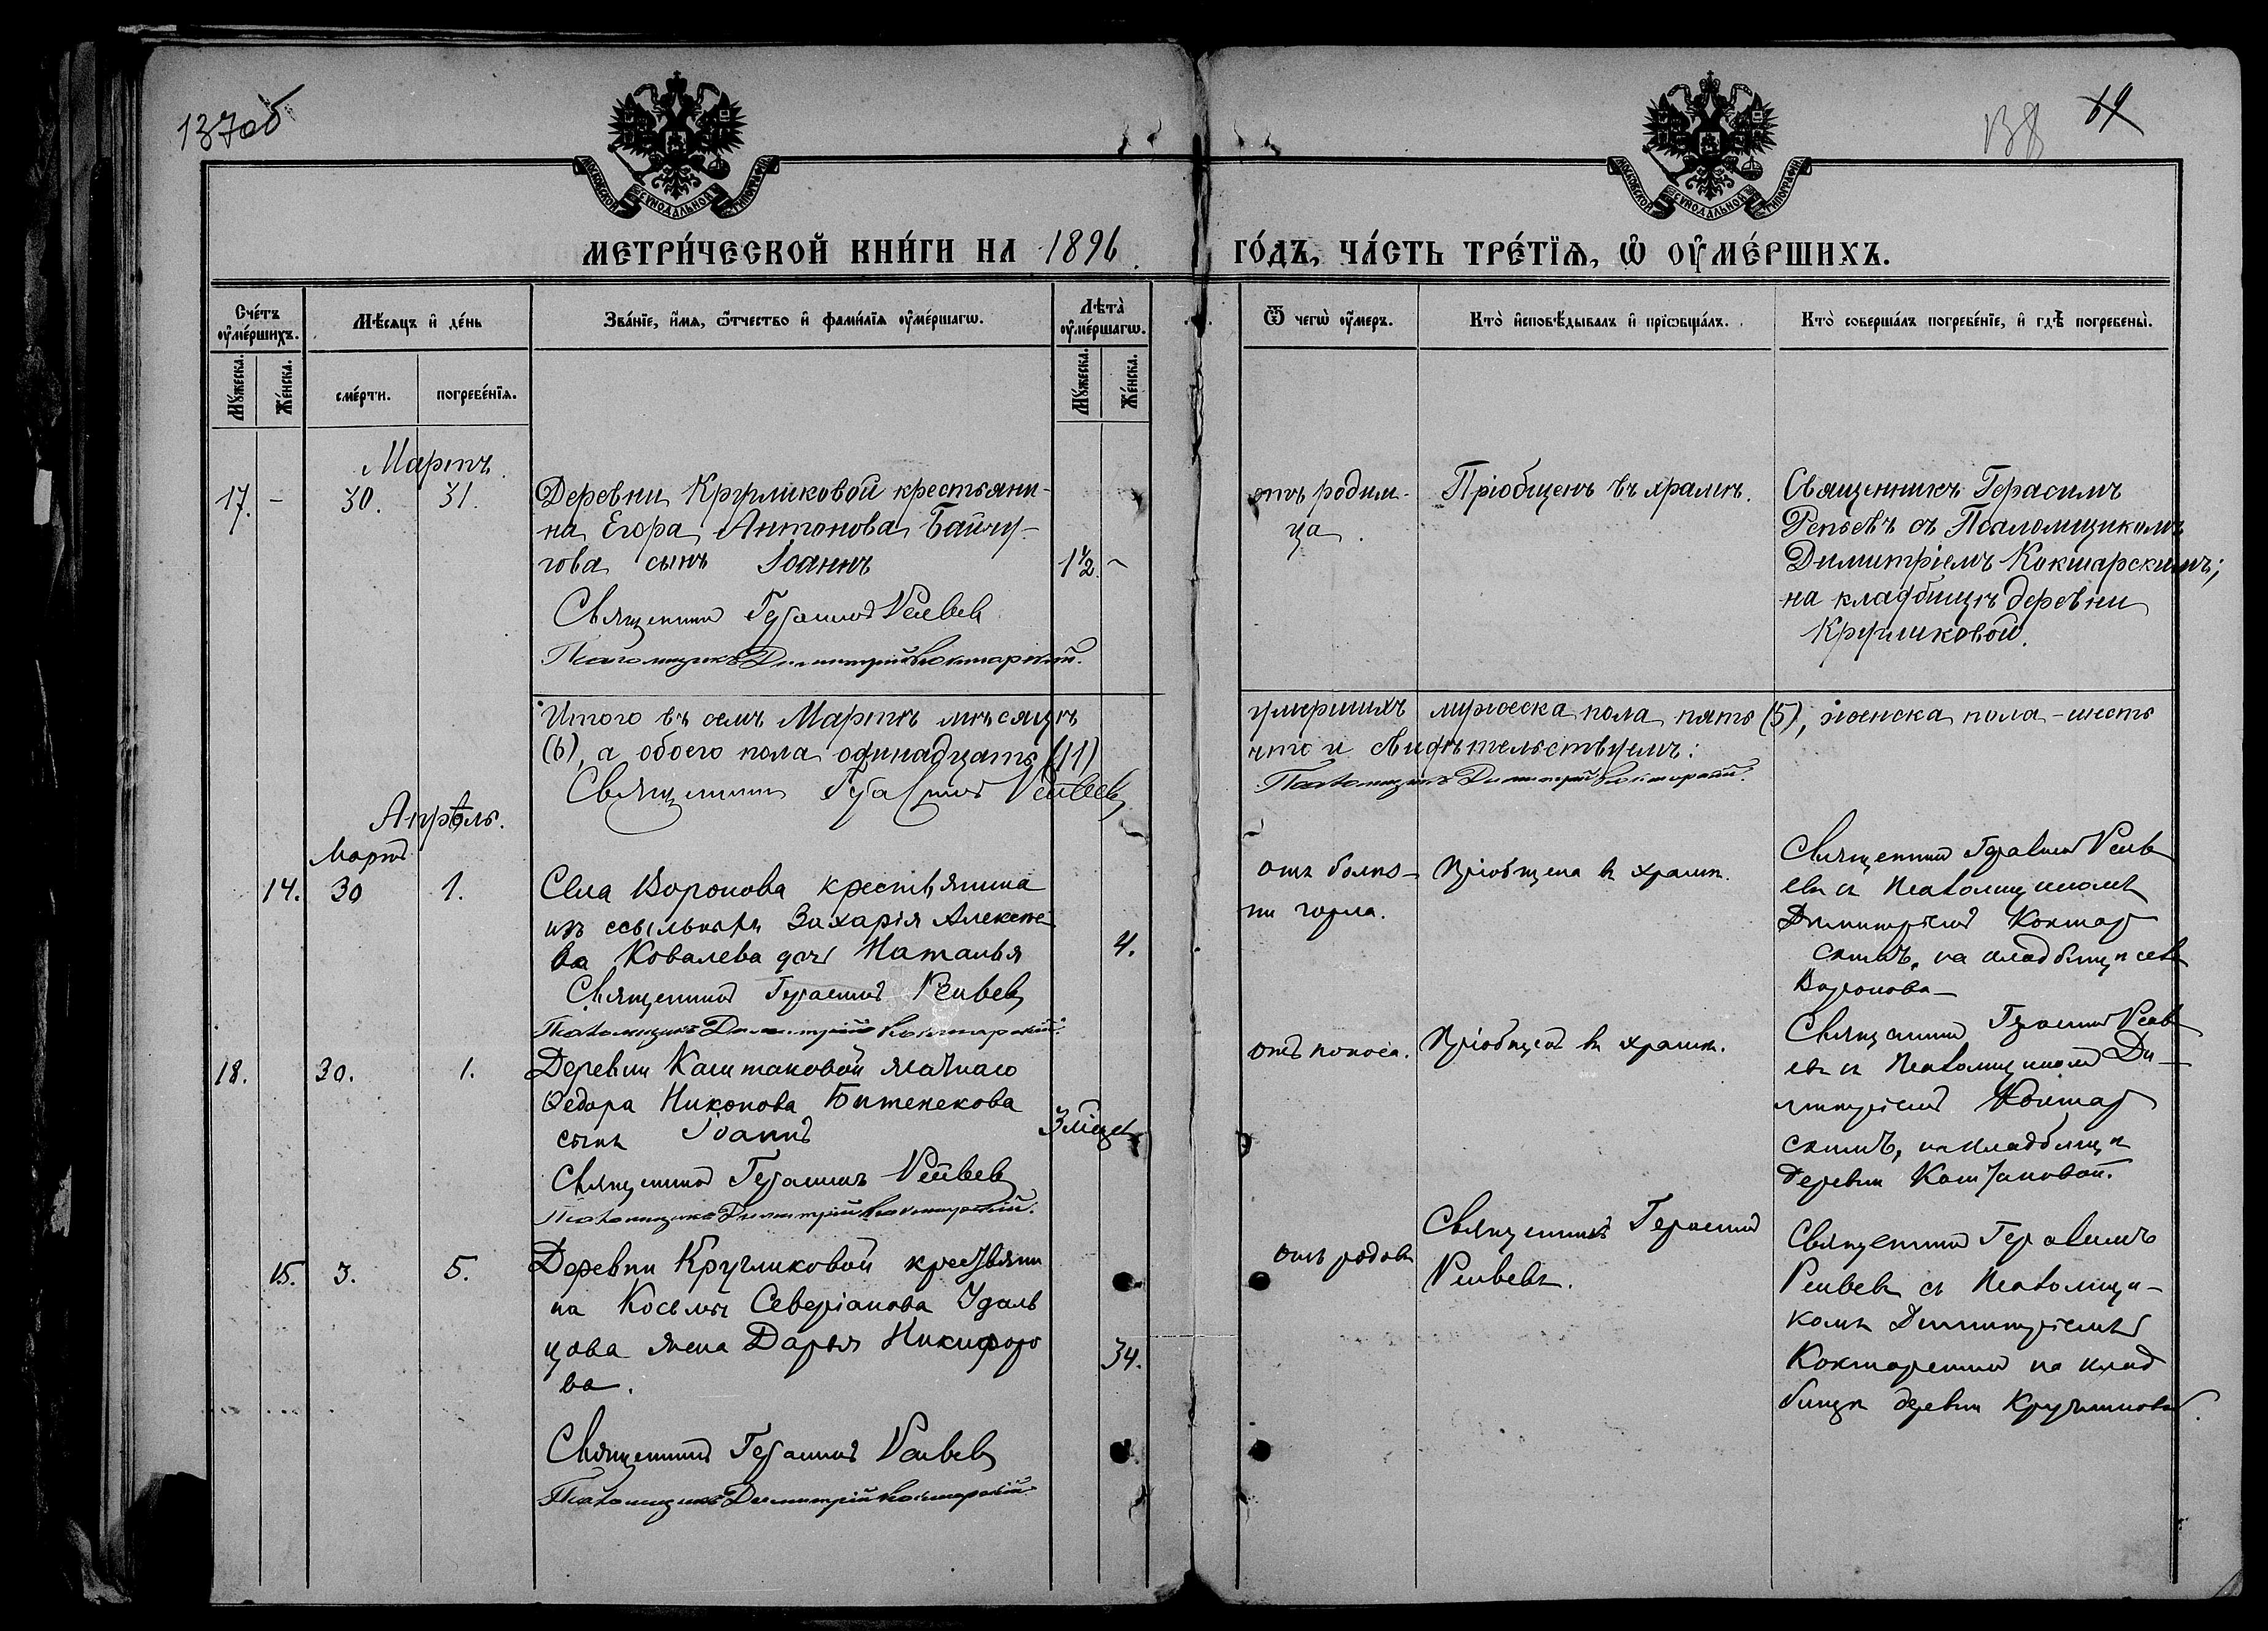 137об
138 19
МОСКОВСКОЙ СѴНОДАЛЬНОЙ ТИПОГРАФІИ
МОСКОВСКОЙ СѴНОДАЛЬНОЙ ТИПОГРАФІИ
МЕТРИ́ЧЕСКОЙ КНИ́ГИ НА 1896 ГО́ДЪ, ЧА́СТЬ ТРЕ́ТЇѦ, Ѡ҆ ОУ҆МЕ́РШИХЪ.
Сче́тъ оу҆ме́ршихъ.
Мѣ́сяцъ и҆ де́нь
Зва́нїе, и҆́мѧ, ѻ҆́тчество и҆ фами́лїѧ оу҆ме́ршагѡ.
Лѣта̀ оу҆ме́ршагѡ.
Ѿ чегѡ̀ оу҆́меръ.
Кто̀ и҆сповѣ́дывалъ и҆ прїѡбща́лъ.
Кто̀ соверша́лъ погребе́нїе, и҆ гдѣ̀ погребены̀.
Мꙋ́жеска. Же́нска.
сме́рти. погребе́нїѧ.
Мꙋ́жеска. Же́нска.
Мартъ
17. - 30. 31. Деревни Кругликовой крестьяни-
на Егора Антонова Байгу-
гова сынъ Іоаннъ 1½. -
Священникъ Герасимъ Репьевъ
Псаломщикъ Димитрій Кокшарскій.
отъ родим-
ца.
Пріобщенъ въ храмѣ.
Священникъ Герасимъ
Репьевъ съ Псаломщикомъ
Димитріемъ Кокшарскимъ;
на кладбищѣ деревни
Кругликовой.
Итого въ семъ Мартѣ мѣсяцѣ умершихъ мужеска пола пять (5), женска пола - шесть
(6), а обоего пола одинадцать (11) что и свидѣтельствуемъ:
Священникъ Герасимъ Репьевъ
Псаломщикъ Димитрій Кокшарскій.
Апрѣль.
Мартъ
14. 30 1. Села Воронова крестьянина
изъ ссыльныхъ Захарія Алексѣе
ва Ковалева дочь Наталья 4.
Священникъ Герасимъ Репьевъ
Псаломщикъ Димитрій Кокшарскій.
отъ болѣз-
ни горла.
Пріобщена въ храмѣ.
Священникъ Герасимъ Репь
евъ съ Псаломщикомъ
Димитріемъ Кокшар
скимъ, на кладбищѣ села
Воронова
18. 30. 1. Деревни Каштаковой ясачнаго
Федора Никонова Битенекова
сынъ Іоаннъ 3 мѣсяц.
Священникъ Герасимъ Репьевъ
Псаломщикъ Димитрій Кокшарскій.
отъ поноса.
Пріобщенъ въ храмѣ.
Священникъ Герасимъ Репь
евъ съ Псаломщикомъ Ди-
митріемъ Кокшар
скимъ, на кладбищѣ
деревни Каштаковой.
15. 3. 5. Деревни Кругликовой крестьяни
на Косьмы Северіанова Удаль
цова жена Дарья Никифоро
ва. 34.
Священникъ Герасимъ Репьевъ
Псаломщикъ Димитрій Кокшарскій
отъ родовъ
Священникъ Герасимъ
Репьевъ.
Священникъ Герасимъ
Репьевъ съ Псаломщи-
комъ Димитріемъ
Кокшарскимъ на клад
бищѣ деревни Кругликовой.